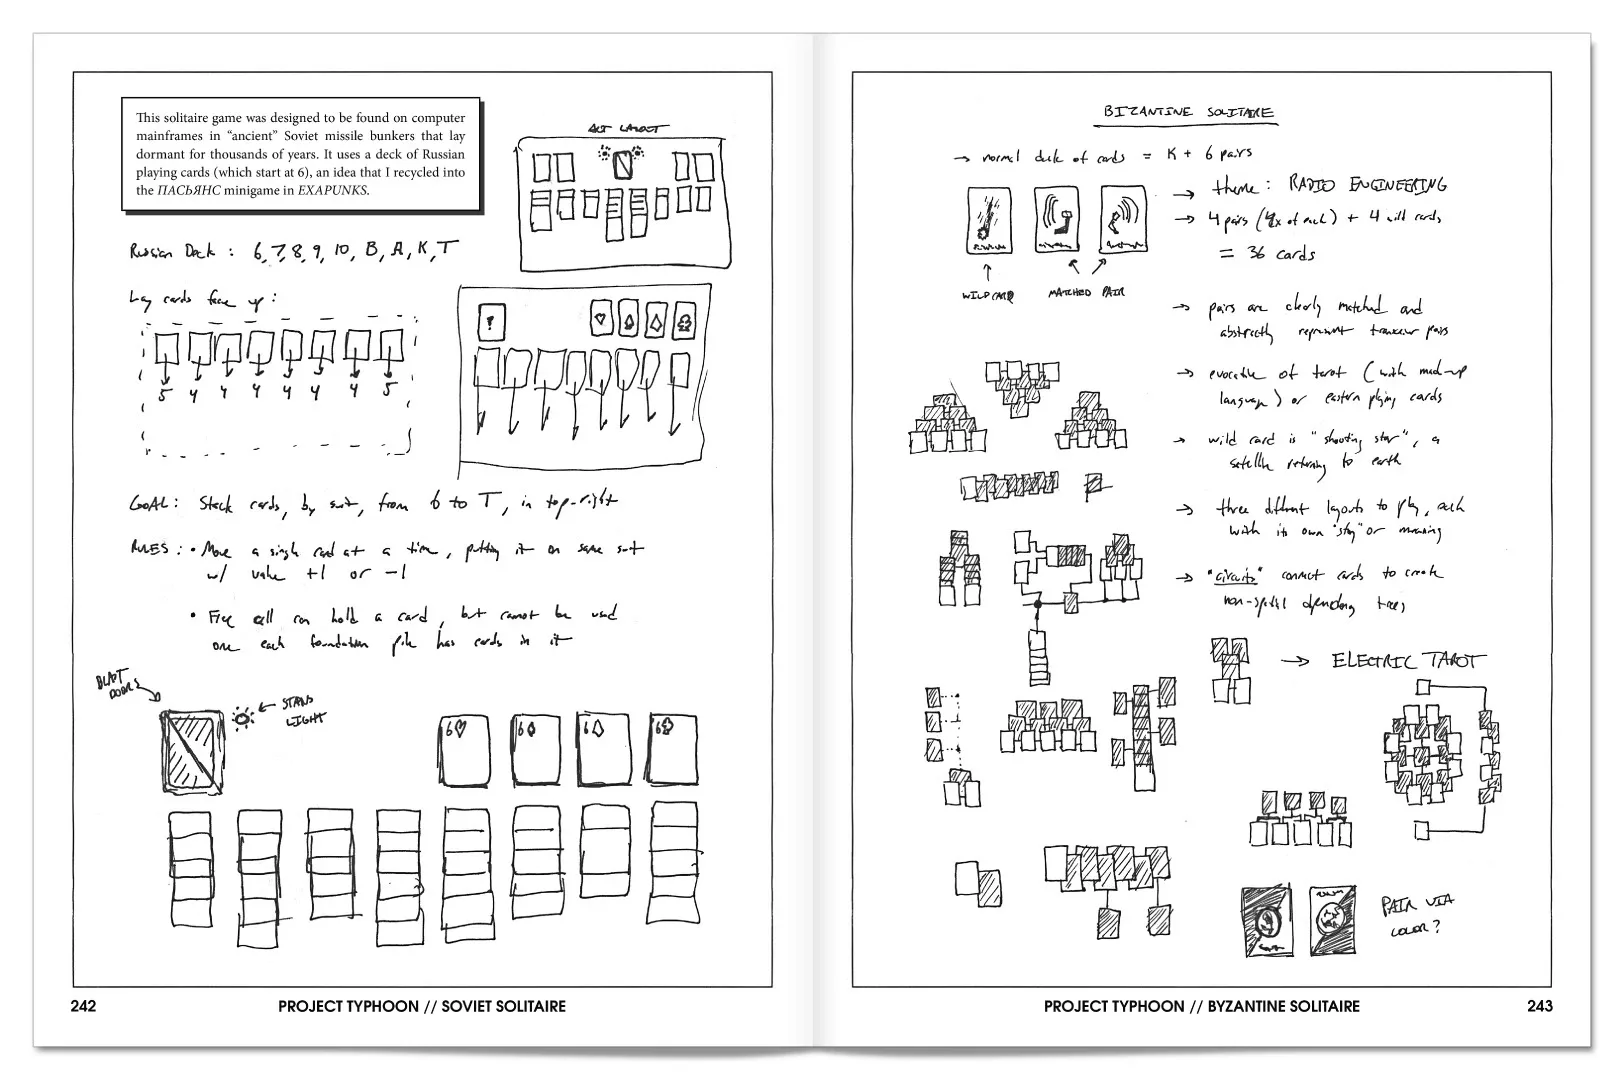 This solitaire game was designed to be found on computer
mainframes in “ancient” Soviet missile bunkers that lay
dormant for thousands of years. It uses a deck of Russian
playing cards (which start at 6), an idea that I recycled into
the ПАСЬЯНС minigame in EXAPUNKS.
ALT LAYOUT
Russian Deck : 6, 7, 8, 9, 10, B, A, K, T
Lay cards face up :
5 4 4 4 4 4 4 5
?
GOAL: Stack cards, by suit, from 6 to T, in top-right
RULES: • Move a single card at a time, putting it on same suit
w/ value +1 or -1
• Free cell can hold a card, but cannot be used
once each foundation pile has cards in it
BLAST
DOORS
STATUS
LIGHT
6♡ 6♠ 6♢ 6♣
242
PROJECT TYPHOON // SOVIET SOLITAIRE
BIZANTINE SOLITAIRE
→ normal deck of cards = K + 6 pairs
→ theme : RADIO ENGINEERING
→ 4 pairs (4x of each) + 4 wild cards
= 36 cards
WILDCARD
MATCHED PAIR
→ pairs are clearly matched and
abstractly represent pairs
→ evocative of tarot (with mad-up
language) or eastern playing cards
→ wild card is "shooting star", a
satellite returning to earth
→ three different layouts to play, each
with its own "story" or meaning
→ "circuits" connect cards to create
non-spatial depending trees
→ ELECTRIC TAROT
PAIR VIA
COLOR?
PROJECT TYPHOON // BYZANTINE SOLITAIRE
243